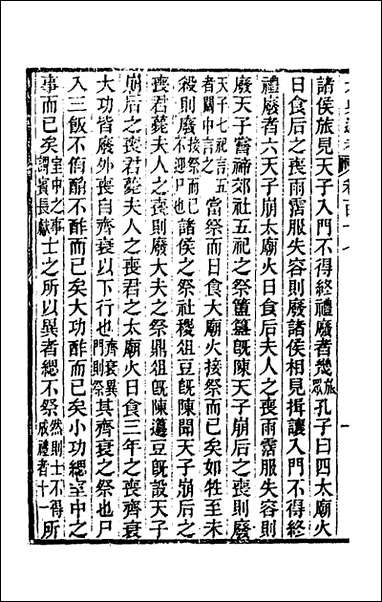 諸侯旅見天子入門不得終禮廢者幾旅衆孔子曰四太廟火
日食后之喪雨霑服失容則廢諸侯相見揖讓入門不得終
禮廢者六天子崩太廟火日食后夫人之喪雨霑服失容則
廢天子嘗禘郊社五祀之祭簠簋旣陳天子崩后之喪則廢
天子七祀言五者關中言之當祭而日食大廟火接祭而已矣如牲至未
殺則廢接祭而已不迎尸也諸侯之祭社稷俎豆旣陳聞天子崩后之
喪君薨夫人之喪則廢大夫之祭鼎俎旣陳籩豆旣設天子
崩后之喪君薨夫人之喪君之太廟火日食三年之喪齊衰
大功皆廢外喪自齊衰以下行也齊衰異門則祭其齊衰之祭也尸
入三飯不侑酳不酢而已矣大功酢而已矣小功緦室中之
事而已矣室中之事謂賓長獻士之所以異者緦不祭然則士不得成禮者十一所